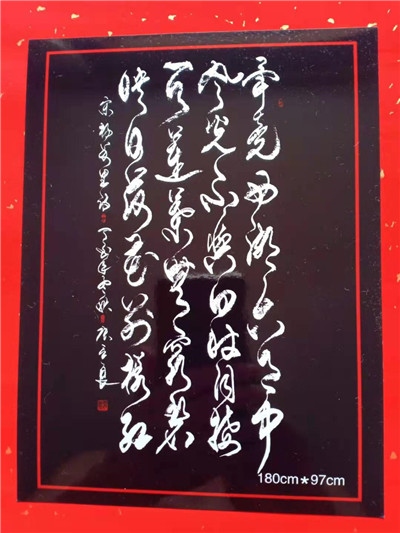 毕竟西湖六月中
风光不与四时同接
天莲叶无穷碧
映日荷花别样红
宋杨万里诗
180cm*97cm